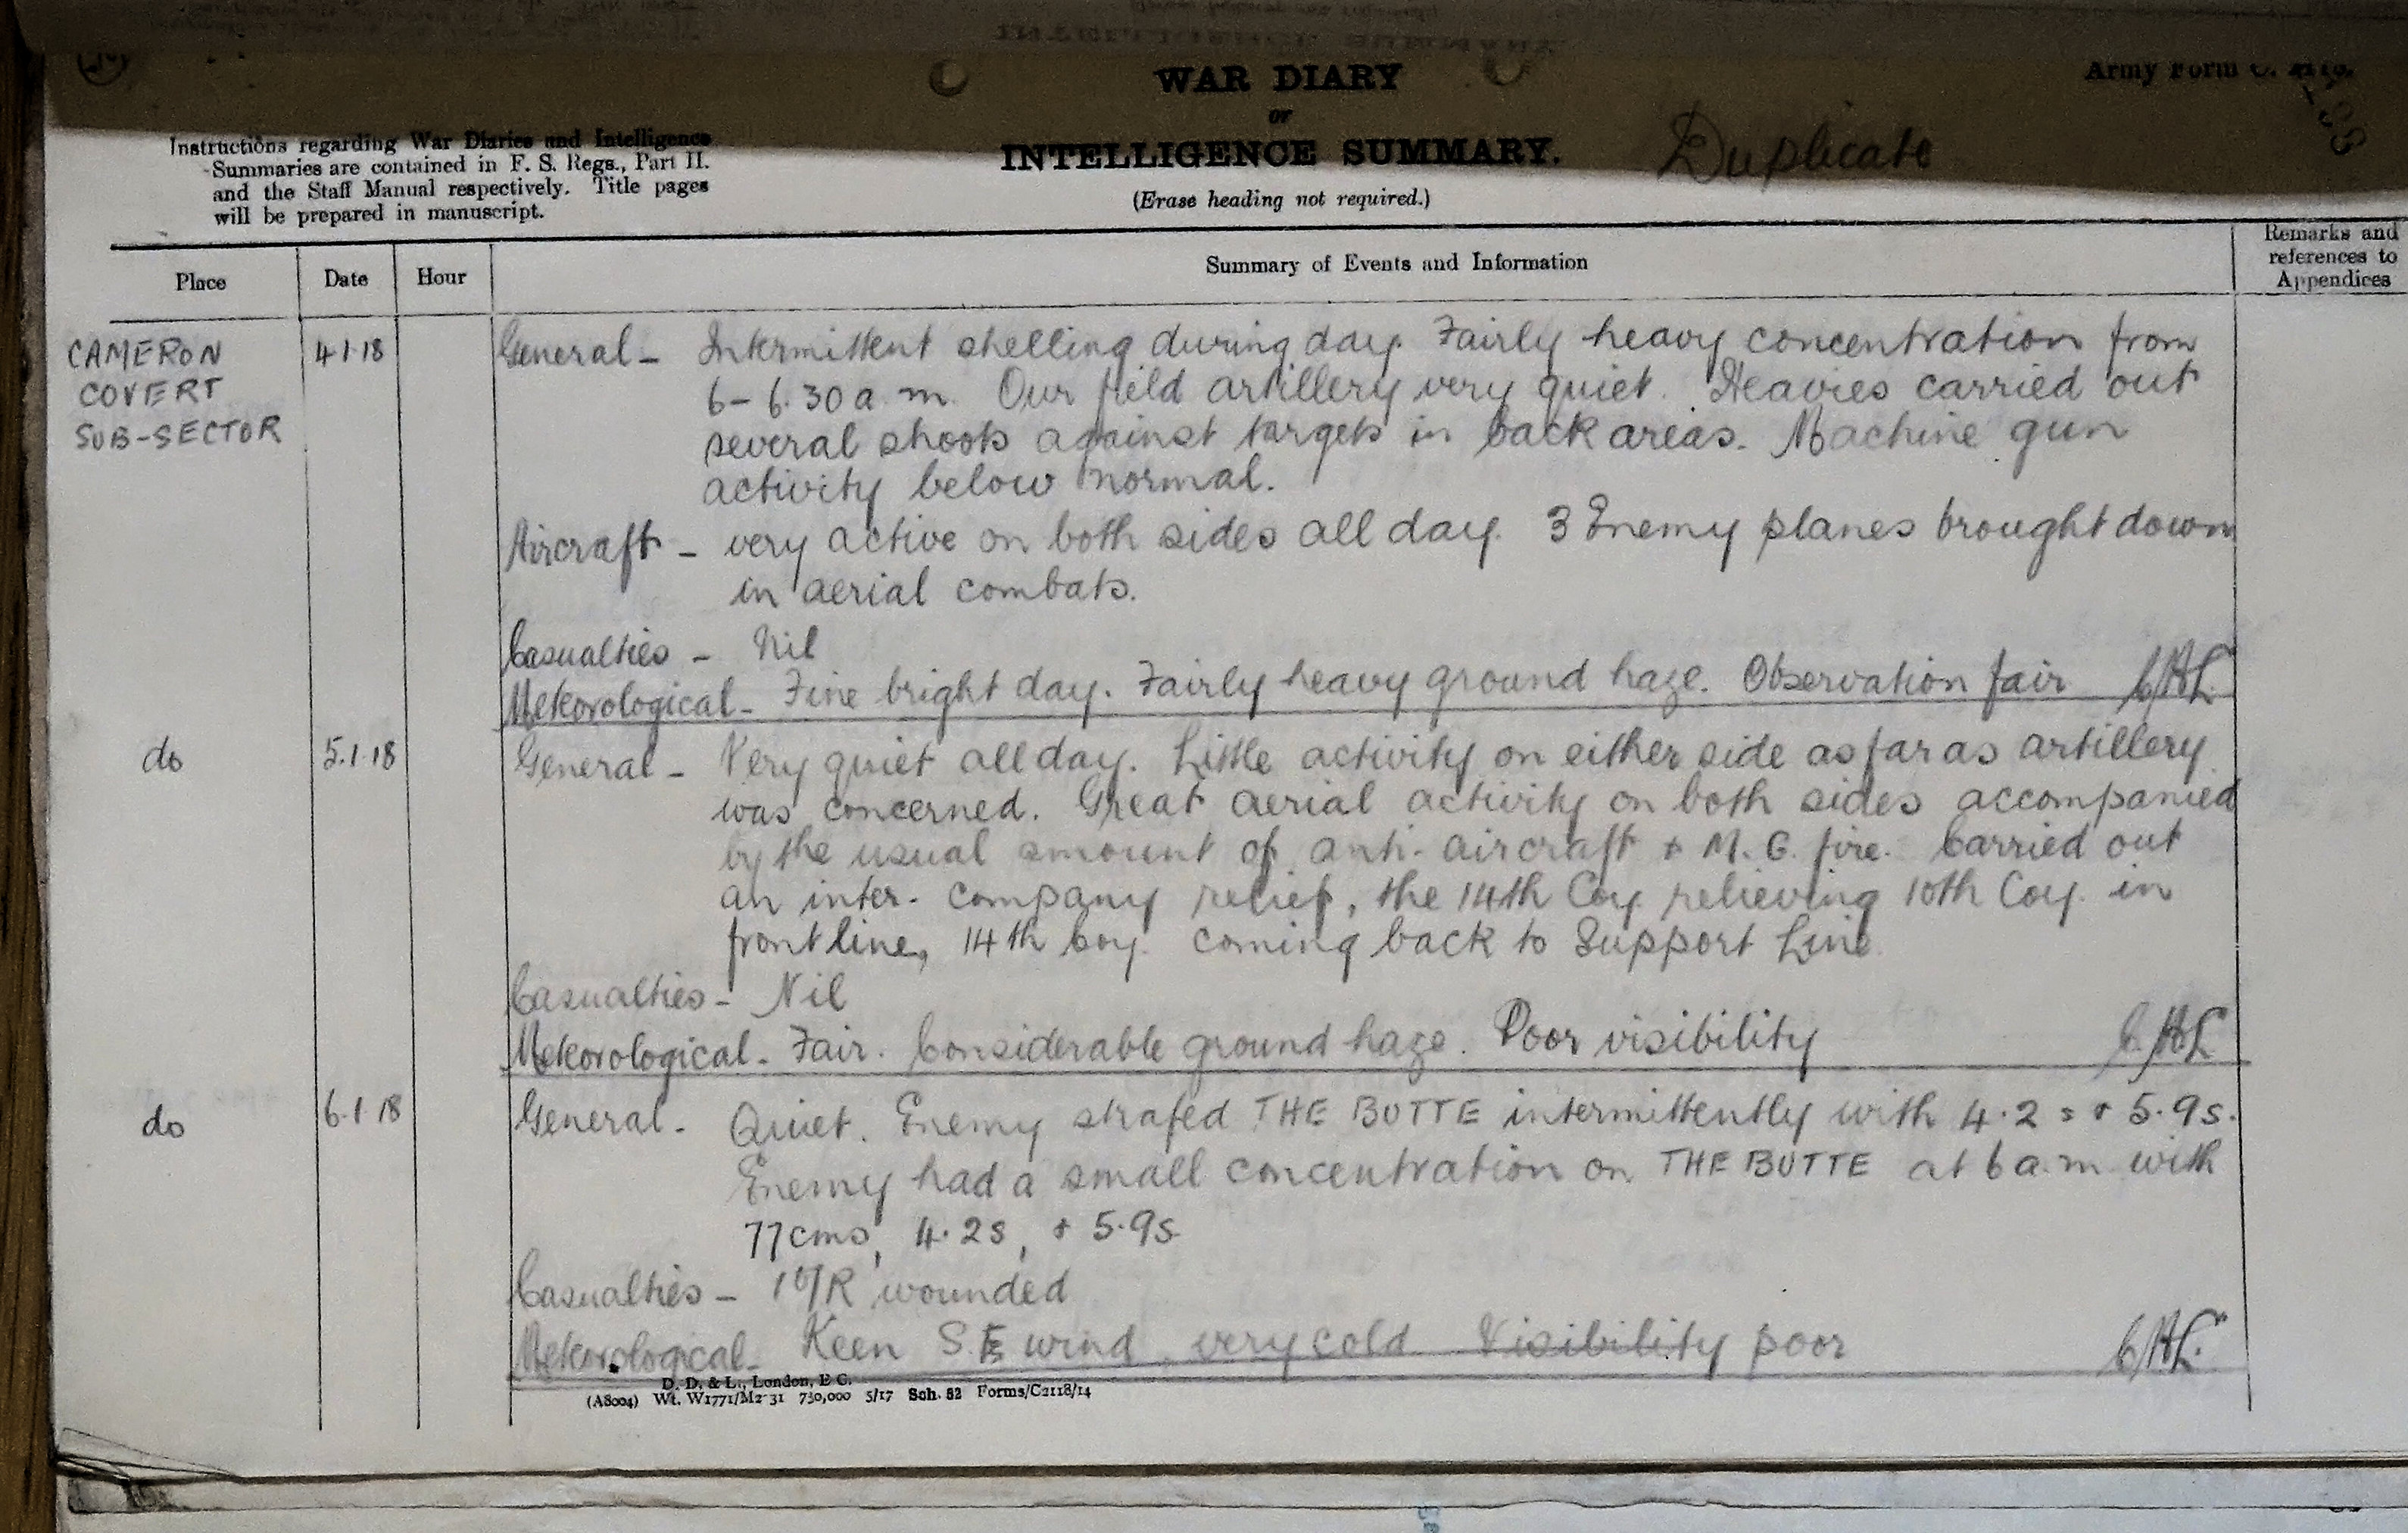 WAR DIARY
Army Form C.
or
INTELLIGENCE SUMMARY.
Duplicate
(Erase heading not required.)
Instructions regarding War Diaries and Intelligence
Summaries are contained in F. S. Regs., Part II.
and the Staff Manual respectively. Title pages
will be prepared in manuscript.
Place
Date
Hour
Summary of Events and Information
Remarks and
references to
Appendices
CAMERON
COVERT
SUB-SECTOR
4.1.18
General - Intermittent shelling during day. Fairly heavy concentration from
6-6.30 a.m. Our field artillery very quiet. Heavies carried out
several shoots against targets in back areas. Machine gun
activity below normal.
Aircraft - very active on both sides all day. 3 Enemy planes brought down
in aerial combats.
Casualties - Nil
Meteorological - Fine bright day. Fairly heavy ground haze. Observation fair
do 5.1.18
General - Very quiet all day. Little activity on either side as far as artillery
was concerned. Great aerial activity on both sides accompanied
by the usual amount of anti-aircraft + M.G. fire. Carried out
an inter-company relief, the 14th Coy relieving 10th Coy. in
front line, 14th Coy. coming back to Support Line
Casualties - Nil
Meteorological - Fair. Considerable ground haze. Poor visibility
do 6.1.18
General - Quiet. Enemy strafed THE BUTTE intermittently with 4.2s + 5.9s.
Enemy had a small concentration on THE BUTTE at 6 a.m. with
77cms, 4.2s, + 5.9s
Casualties - 1 O/R wounded
Meteorological - Keen S.E wind very cold Visibility poor
D. D. & L., London, E.C.
(A8004) Wt. W1771/M2 31 750,000 5/17 Sch. 52 Forms/C2118/14